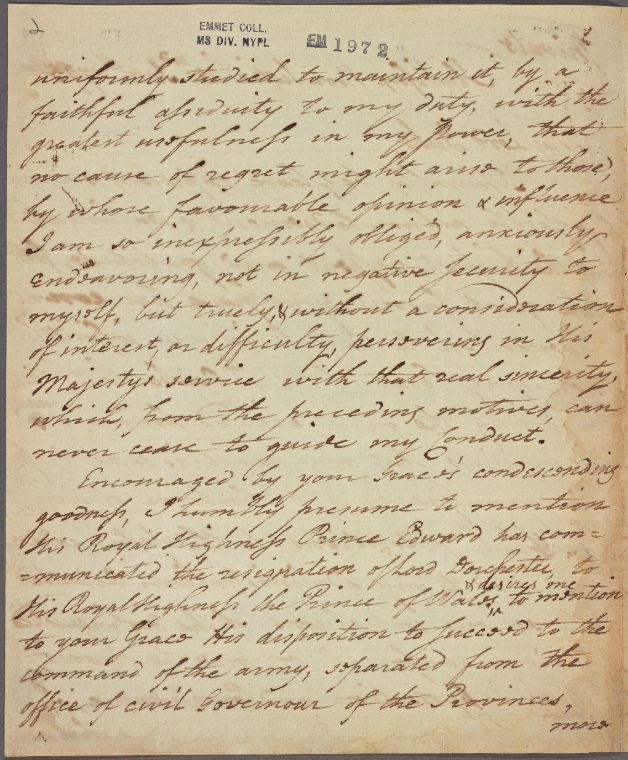 2
EMMET COLL.
MS DIV. NYPL
EM 1972
uniformly studied to maintain it, by a
faithful assiduity to my duty, with the
greatest usefulness in my Power, that
no cause of regret might arise to those,
by whose favourable opinion & influence
I am so inexpressibly obliged, anxiously
endeavoring, not in negative Security to
myself, but truely, & without a consideration
of interest, or difficulty, persevering in His
Majesty's service with that real sincerity,
which, from the preceding motives, can
never cease to guide my Conduct.
Encouraged by your Grace's condescending
goodness, I humbly presume to mention
His Royal Highness Prince Edward has com=
=municated the resignation of Lord Dorchester, to
& desires me
His Royal Highness the Prince of Wales, to mention
to your Grace His disposition to succeed to the
command of the army, separated from the
office of civil Governour of the Provinces,
more